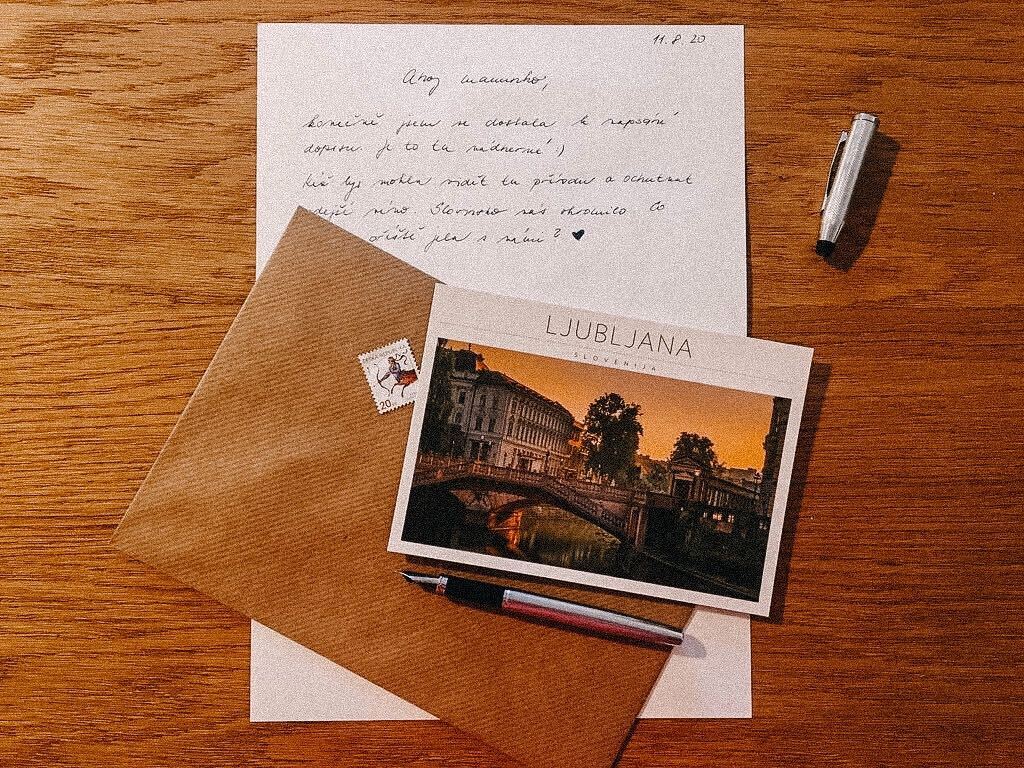 11. 8. 20
Ahoj maminko,
konečně jsem se dostala k napsání
dopisu. Je to tu nádherné :)
Kéž bys mohla vidět tu přírodu a ochutnat
zdejší víno. Slovinsko nás okouzlilo. Co
příště jela s námi? ♥
LJUBLJANA
SLOVENIJA
20